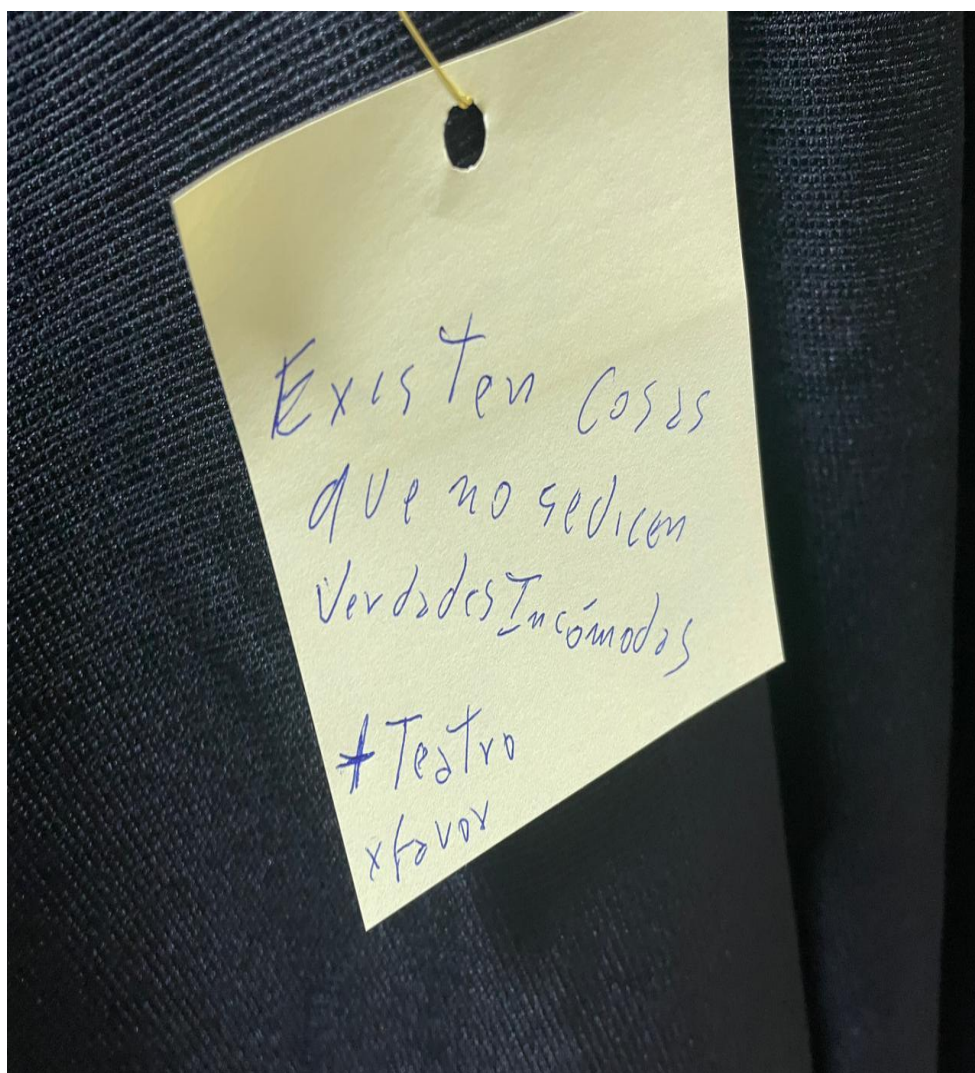 Existen cosas
que no sedicen
Verdades Incómodas
+ Teatro
xfavor